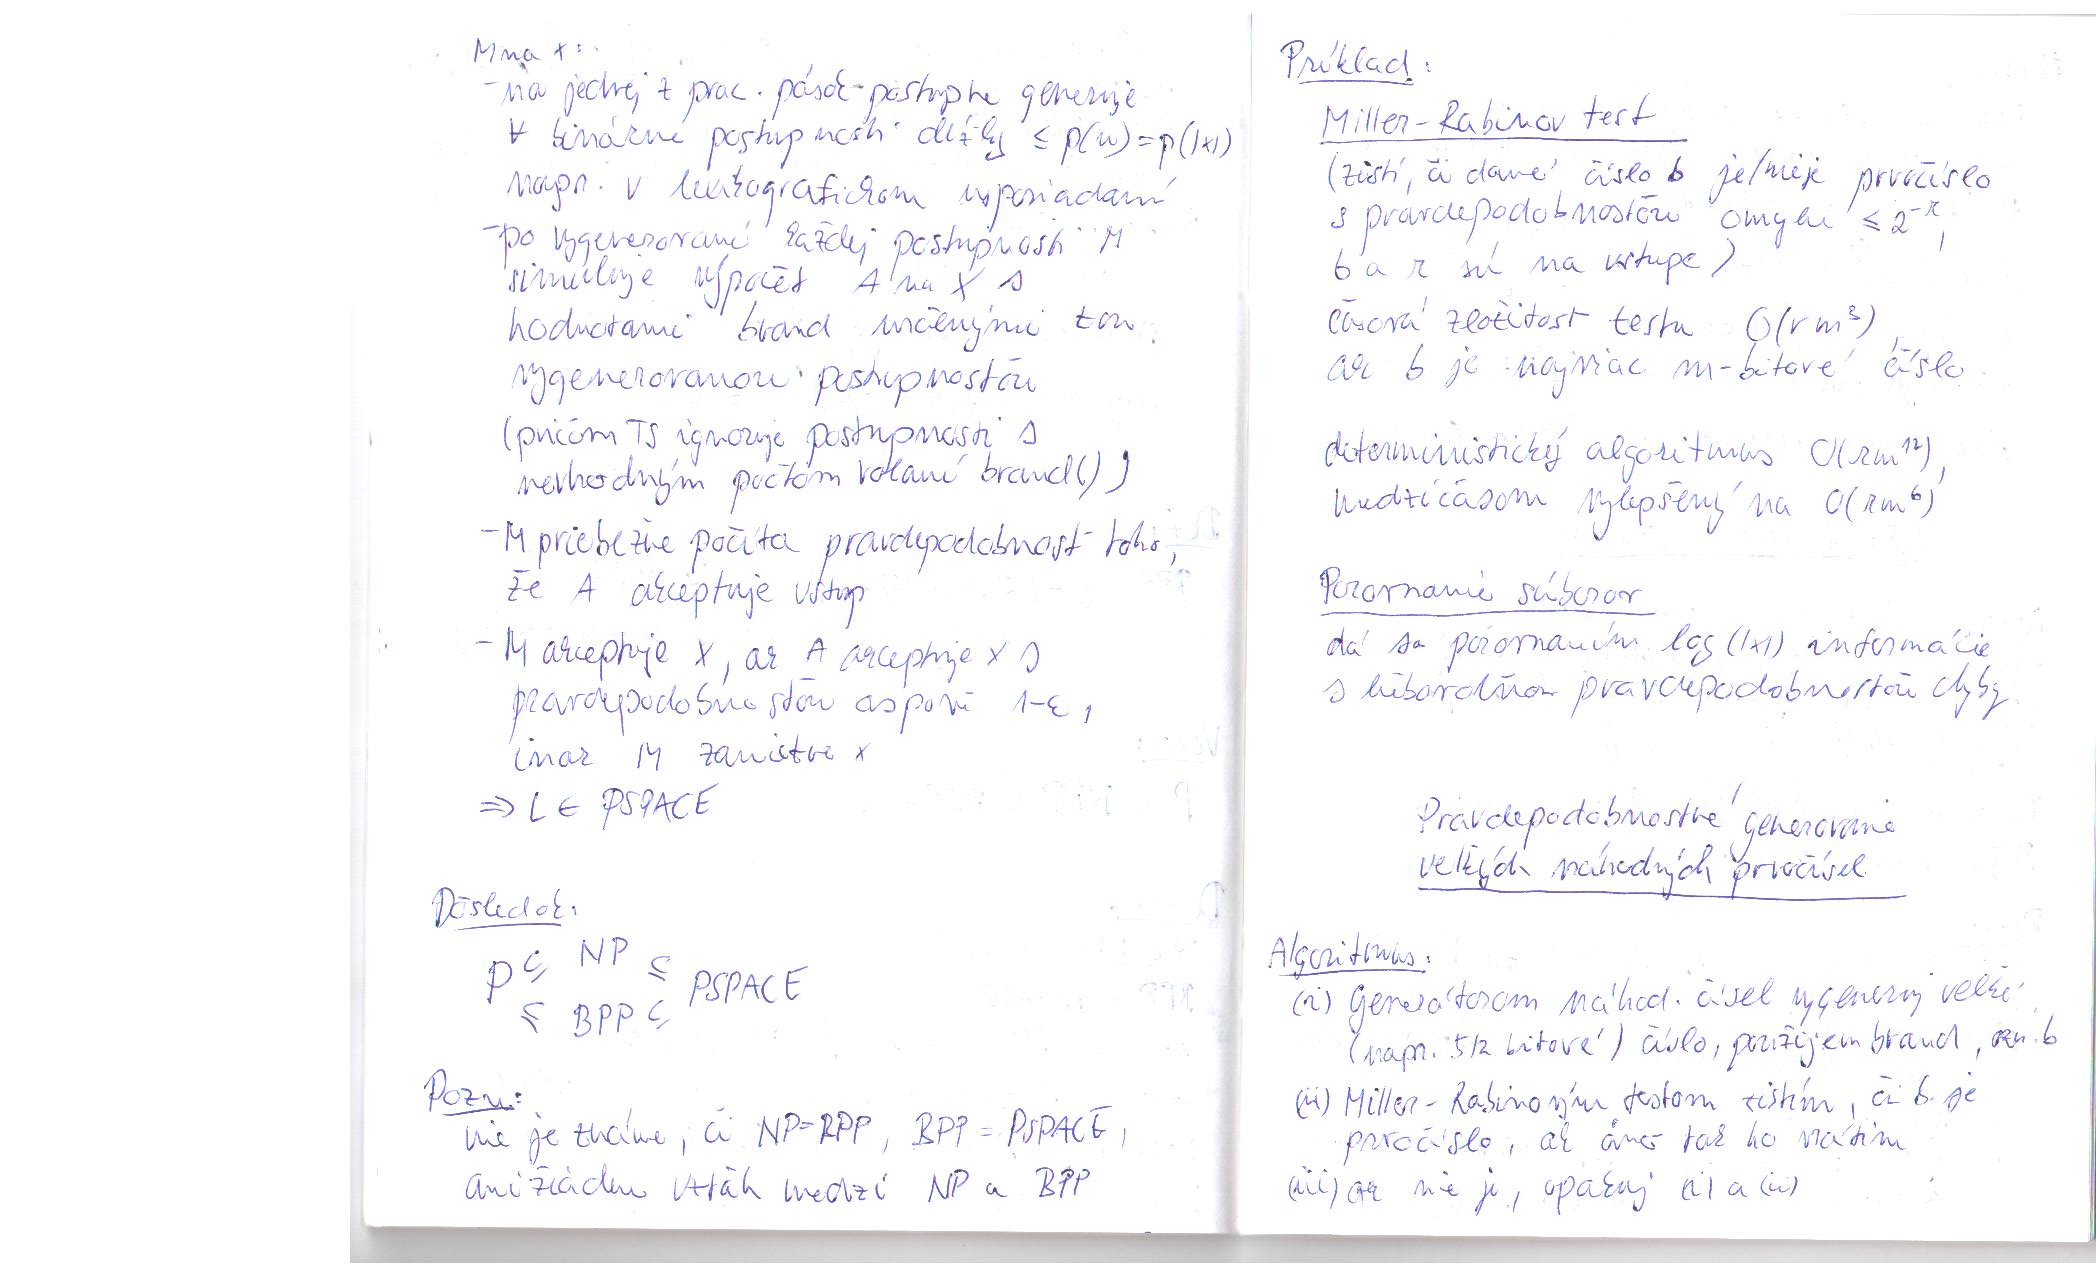 M na x:
- na jednej z prac. pások postupne generuje
∀ binárne postupnosti dĺžky ≤ p(n) = p(|x|)
napr. v lexikografickom usporiadaní
- po vygenerovaní každej postupnosti M
simuluje výpočet A na x s
hodnotami brand určenými tou
vygenerovanou postupnosťou
(pričom TS ignoruje postupnosti s
nevhodným počtom volaní brand())
- M priebežne počíta pravdepodobnosť toho,
že A akceptuje vstup
- M akceptuje x, ak A akceptuje x s
pravdepodobnosťou aspoň 1-ε,
inak M zamietne x
⇒ L ∈ PSPACE
Dôsledok:
P ⊆ NP ⊆ PSPACE
⊆ BPP ⊆
Pozn:
nie je známe, či NP=BPP, BPP = PSPACE,
ani žiaden vzťah medzi NP a BPP
Príklad:
Miller-Rabinov test
(zistí, či dané číslo b je/nie je prvočíslo
s pravdepodobnosťou omylu ≤ 2^-r,
b a r sú na vstupe)
časová zložitosť testu O(r m³),
ak b je najviac m-bitové číslo
deterministický algoritmus O(rm¹²),
medzičasom vylepšený na O(rm⁶)
Porovnanie súborov
dá sa porovnaním log(|x|) informácie
s ľubovoľnou pravdepodobnosťou chyby
Pravdepodobnostné generovanie
veľkých náhodných prvočísel
Algoritmus:
(i) Generátorom náhod. čísel vygeneruj veľké
(napr. 512 bitové) číslo, použijem brand, ozn. b
(ii) Miller-Rabinovým testom zistím, či b je
prvočíslo, ak áno tak ho vrátim
(iii) ak nie je, opakuj (i) a (ii)